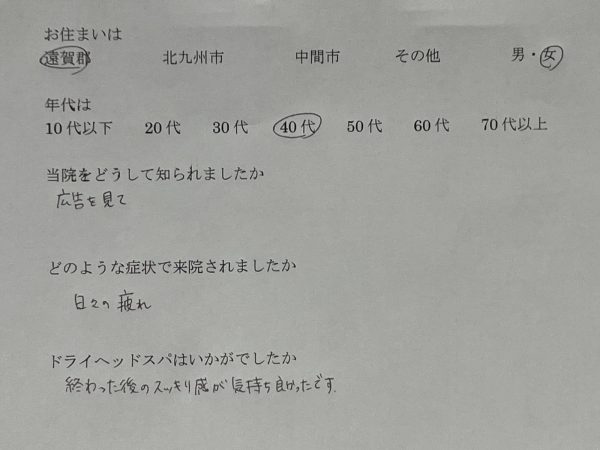 お住まいは
遠賀郡 北九州市 中間市 その他 男・女
年代は
10代以下 20代 30代 40代 50代 60代 70代以上
当院をどうして知られましたか
広告を見て
どのような症状で来院されましたか
日々の疲れ
ドライヘッドスパはいかがでしたか
終わった後のスッキリ感が気持ち良かったです.